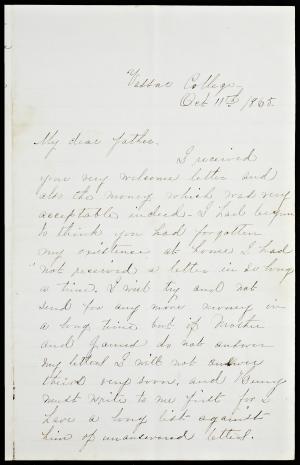 Vassar College,
Oct 11th 1865.
My dear father.
I received
your very welcome letter and
also the money which was very
acceptable indeed - I had begun
to think you had forgotten
my existence at home I had
not received a letter in so long
a time. I will try and not
send for any more money in
a long time but if Mother
and do not answer
my letters I will not answer
theirs very soon, and
must write to me first for I
have a long list against
him of unanswered letters.